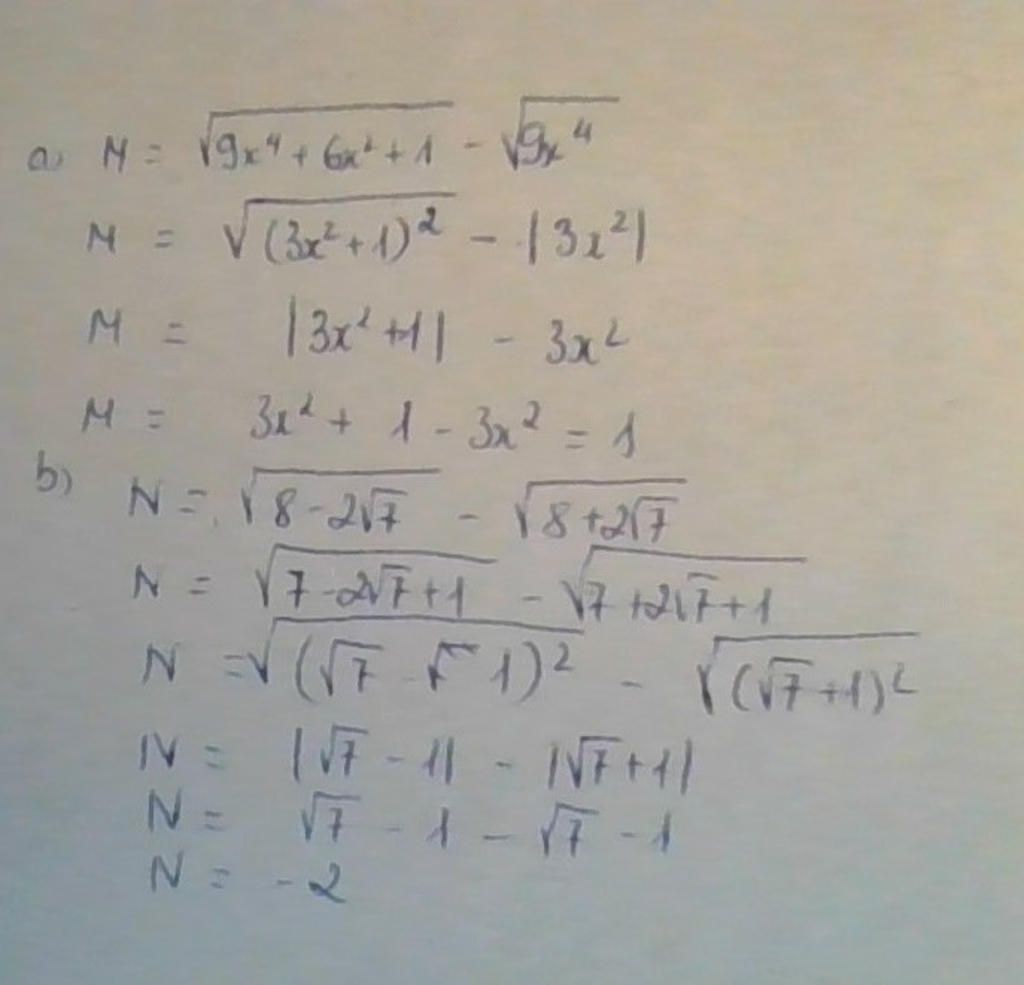 a) M = √(9x⁴ + 6x² + 1) - √(9x⁴)
M = √((3x² + 1)²) - |3x²|
M = |3x² + 1| - 3x²
M = 3x² + 1 - 3x² = 1
b) N = √(8 - 2√7) - √(8 + 2√7)
N = √(7 - 2√7 + 1) - √(7 + 2√7 + 1)
N = √((√7 - √ 1)²) - √((√7 + 1)²)
N = |√7 - 1| - |√7 + 1|
N = √7 - 1 - √7 - 1
N = -2